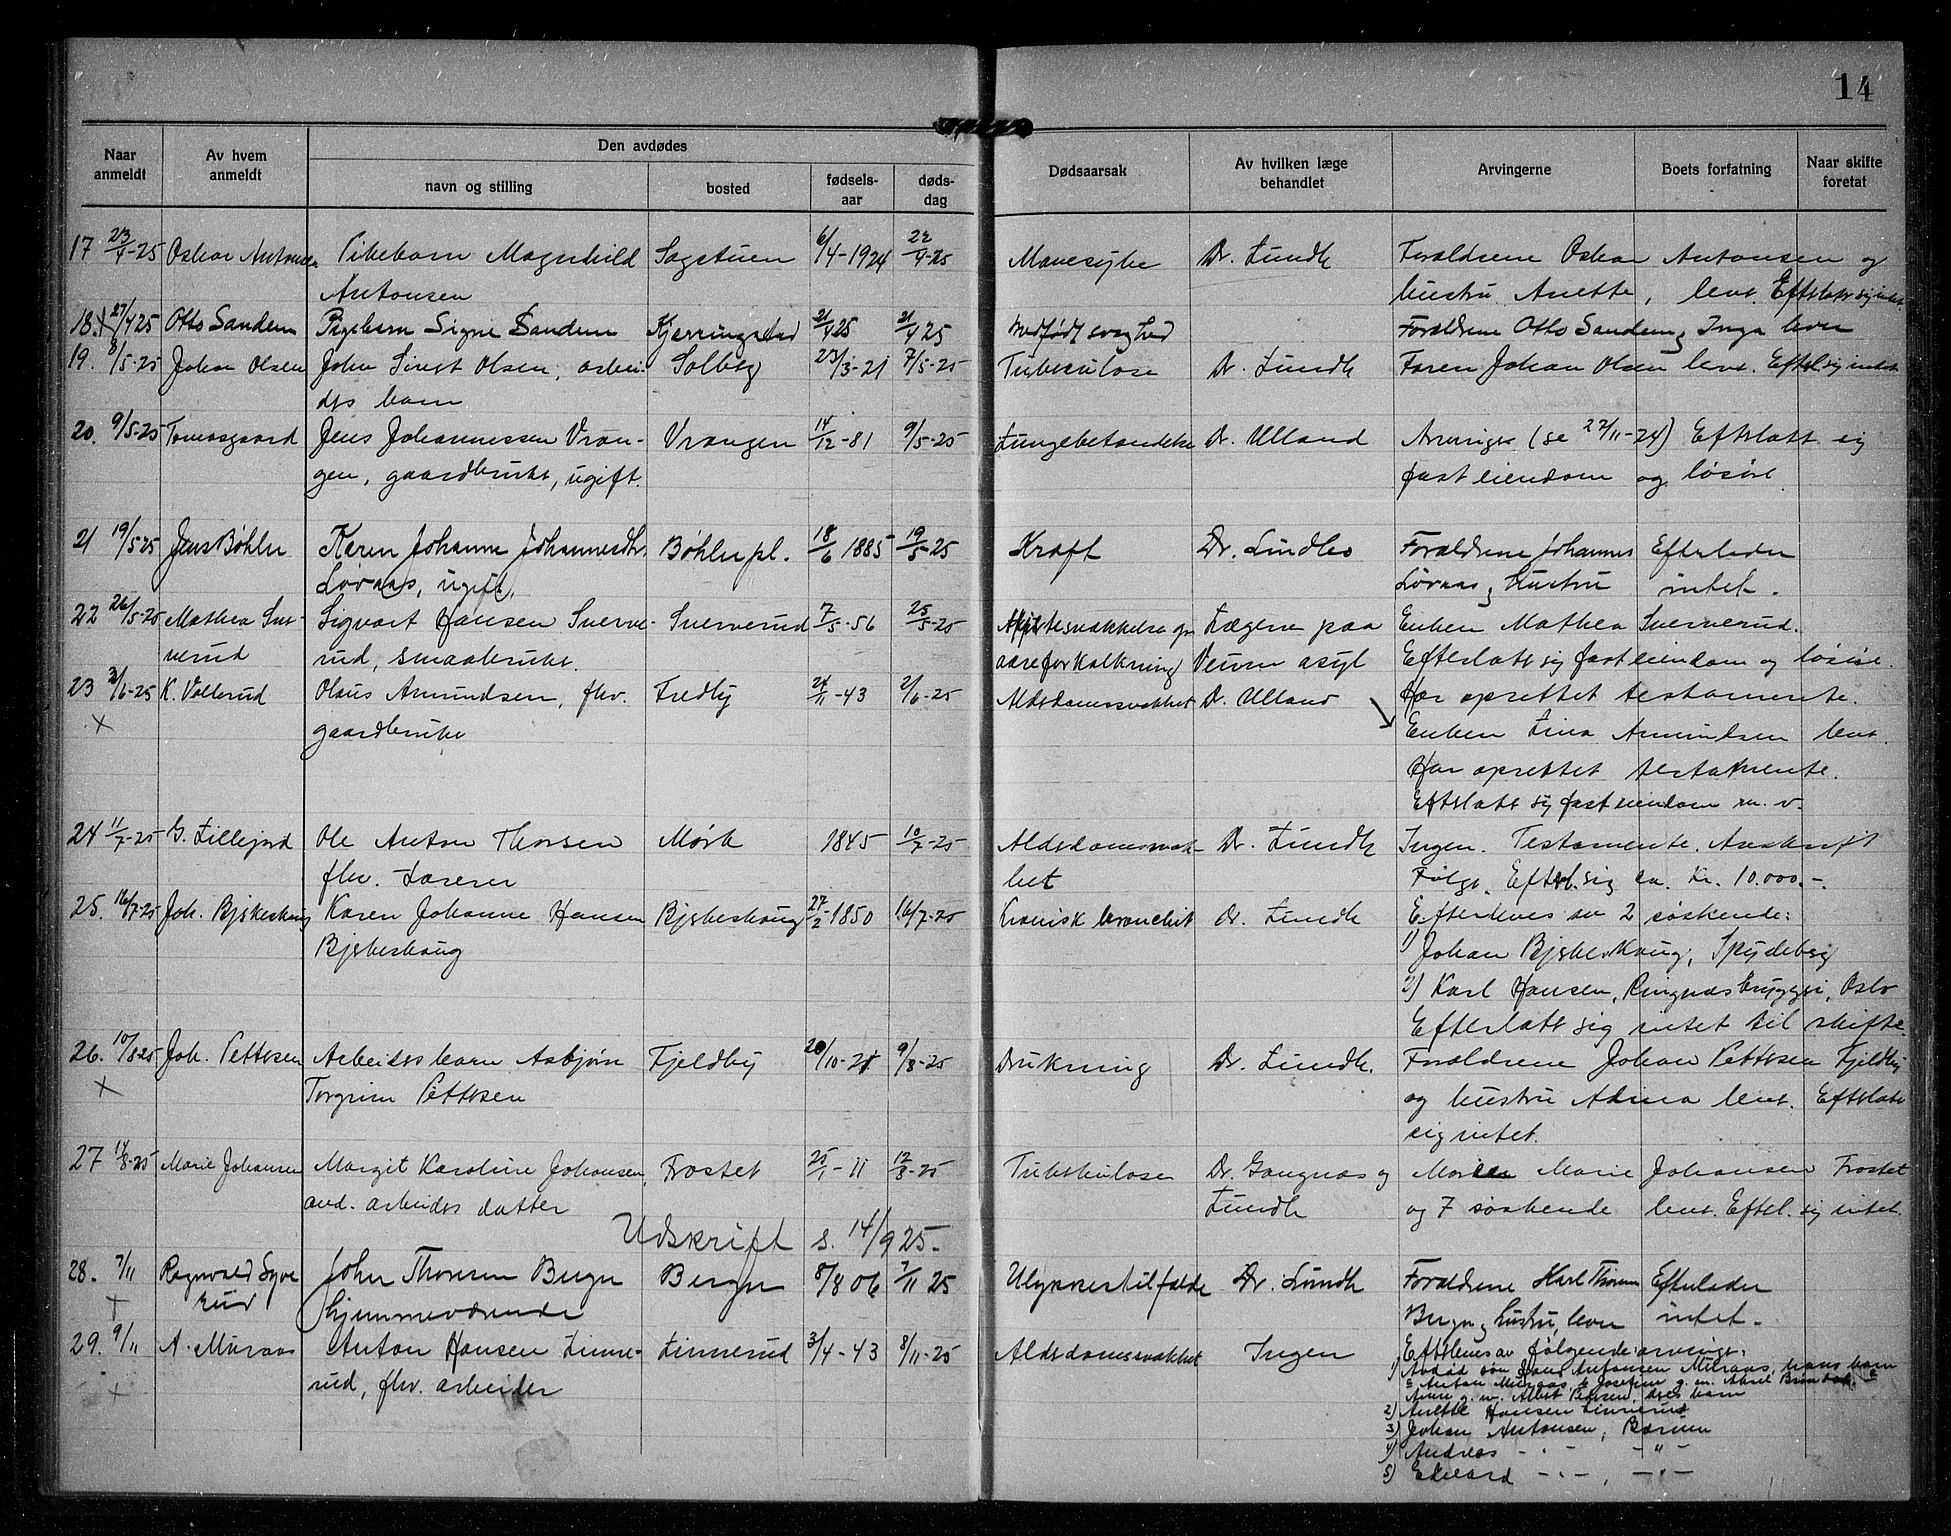 14
Naar anmeldt
Av hvem anmeldt
Den avdødes
navn og stilling
bosted
fødsels-aar
døds-dag
Dødsaarsak
Av hvilken læge behandlet
Arvingerne
Boets forfatning
Naar skifte foretat
17 23/4-25 Oskar Antonsen Pikebarn Magnhild Sagstuen 6/4-1924 22/4-25 Mavesyke Dr. Lundh Forældrene Oskar Antonsen og
Antonsen hustru Anette, lever. Efterlater sig intet
18. x 27/4 25 Otto Sandem Pigebarn Signe Sandem Kjerringstad 21/4 25 21/4 25 medfødt svaghed Forældrene Otto Sandem og Inga lever
19. 8/5-25 Johan Olsen John Olsen, arbei- Solberg 23/3-21 7/5-25 Tuberculose Dr. Lundh Faren Johan Olsen lever. Efterl. sig intet
ders barn
20. 9/5-25 Tomasgaard Jens Johannessen Vran- Vrangen 14/12-81 9/5-25 Lungebetændelse Dr. Ulland Arvinger (se 27/11-24) Efterlatt sig
gen, gaardbruker, ugift. fast eiendom og løsøre.
21 19/5-25 Jens Bøhler Karen Johanne Johannesdtr. Bøhlerpl. 18/6 1885 19/5-25 Kræft Dr. Lindbo Forældrene Johannes Efterlader
Løvaas, ugift. Løvaas og hustru intet.
22 26/5-25 Mathea Sver- Sigvart Hansen Sverve- Sververud 7/5-56 25/5-25 Hjertesvækkelse og Lægene paa Enken Mathea Sververud.
verud rud, smaabruker. aareforkalkning asyl Efterlatt sig fast eiendom og løsøre.
23 2/6-25 K. Vollerud Olaus Amundsen, fhv. Fredby 24/11-43 2/6-25 Alderdomssvakhet Dr. Ulland Har oprettet testamente.
x gaardbruker Enken Lina Amundsen lever.
Har oprettet testamente.
Efterlatt sig fast eiendom m. v.
24 11/7-25 G. Lillejord Ole Anton Thorsen Mørk 1845 10/7-25 Alderdomssvak- Dr. Lundh Ingen. Testamente. Avskrift
fhv. Lærer het følger. Efterl. sig ca. kr. 10.000.-.
25. 16/7-25 Joh. Bjerkeshaug Karen Johanne Hansen Bjerkeshaug 27/2 1850 16/7-25 kronisk bronchit Dr. Lundh Efterleves av 2 søskende:
Bjerkeshaug 1) Johan Bjerkeshaug, Spydeberg
2) Karl Hansen, Ringnæs bryggeri, Oslo
Efterlatt sig intet til skifte.
26. 10/8 25 Joh. Pettersen Arbeidersbarn Asbjørn Fjeldby 20/10-21 9/8-25 Drukning Dr. Lundh. Forældrene Johan Pettersen Fjeldby
x Torgrim Pettersen og hustru Alma lever. Efterlatt
sig intet.
27 14/8-25 Marie Johansen Margit Karoline Johansen, Frostet 25/1-11 12/8-25 Tuberkulose Dr. Gangnæs og Moren Marie Johansen Frostet
avd. arbeiders datter Lundh og 7 søskende lever. Efterl. sig intet.
Udskrift s. 14/9 25.
28. 7/11 Ragnvald Syve John Thoresen Berger Berger 8/8 06 7/11 25 Ulykkestilfælde Dr. Lundh Forældrene Karl Thoresen Efterlader
x rud hjemmeværende Berger og hustru lever intet.
29. 9/11 A. Muraas Anton Hansen Linne- Linnerud 3/4-43 8/11-25 Alderdomssvakhet Ingen Efterleves av følgende arvinger:
x rud, fhv. arbeider 1) Avdød søn Hans Antonsen Muraas, hans barn
Anton Muraas, Josefine g. m. Aksel
g. m. Albert Pedersen, deres barn
2) Anette Hansen Linnerud
3) Johan Antonsen, Bærum
4) Andreas -"- -"-
5) Edvard -"-, -"-